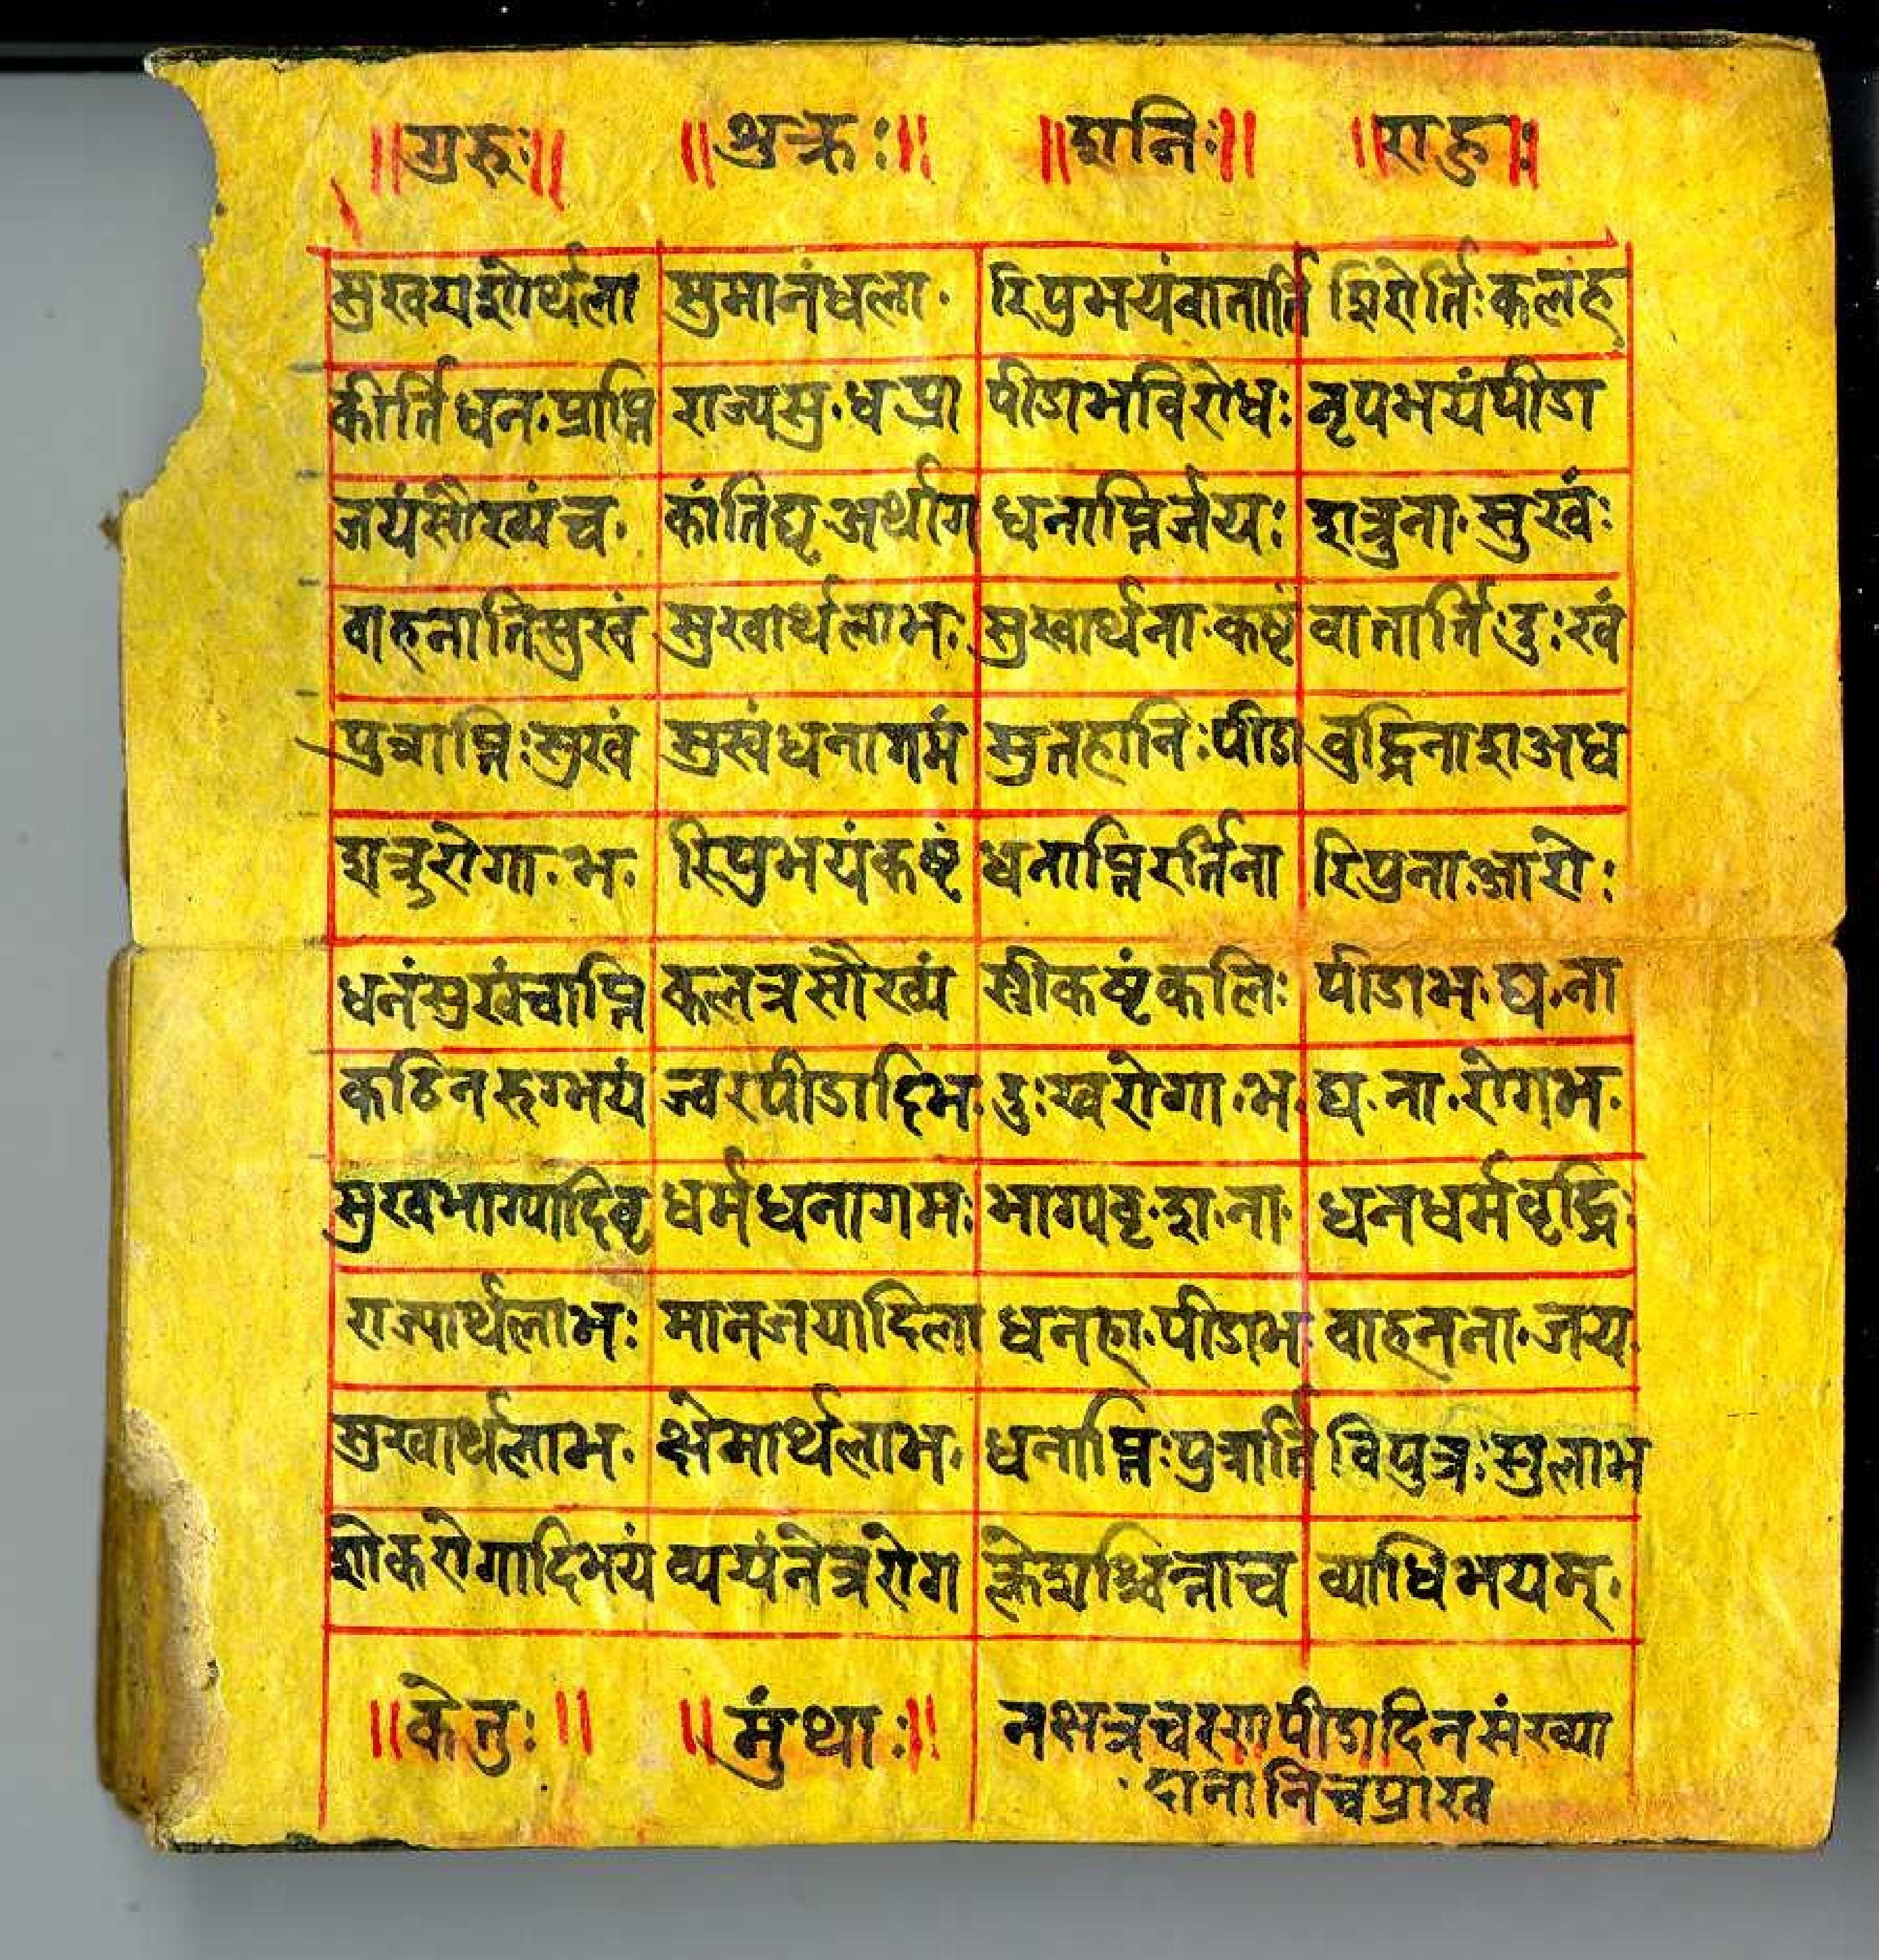 ॥गुरुः॥ ॥शुक्रः॥ ॥शनिः॥ ॥राहुः॥
सुखयशोर्थला सुमानंधला॰ रिपुभयंवातार्ति शिरोर्तिःकलह
कीर्तिधन॰प्राप्ति राज्यसु॰धप्रा पीडाभविरोधः नृपभयंपीडा
जयंसौख्यंच॰ कांतिद्यृअर्थाग धनाप्तिर्जयः शत्रुना॰सुखंः
वाहनातिसुखं सुखार्थलाभः सुखार्थना॰कष्टं वातार्तिःदुःखं
पुत्राप्तिःसुखं सुखंधनागमं सुतहानिःपीडा बुद्धिनाशअध
शत्रुरोगा॰भ॰ रिपुभयंकष्टं धनाप्तिरर्तिना रिपुना॰आरोः
धनंसुखंचाप्ति कलत्रसौख्यं स्त्रीकष्टंकलिः पीडाभ॰द्य॰ना
कठिनरुग्भयं ज्वरपीडादिभ॰ दुःखरोगा॰भ॰ द्य॰ना॰रोगभ॰
सुखभाग्यादिवृ धर्मधनागमः भाग्यवृ॰श॰ना॰ धनधर्मवृद्धिः
राज्यार्थलाभः मानजयादिला धनहा॰पीडाभ वाहनना॰जय
सुखार्थलाभ॰ क्षेमार्थलाभ॰ धनाप्तिःपुत्रार्ति विपुत्रःसुलाभ
शोकरोगादिभयं व्ययंनेत्ररोग क्लेशश्चिन्ताच व्याधिभयम्॰
॥केतुः॥ ॥मुंथाः॥ नक्षत्रचरणपीडादिनसंख्या
दानानिचप्रारव